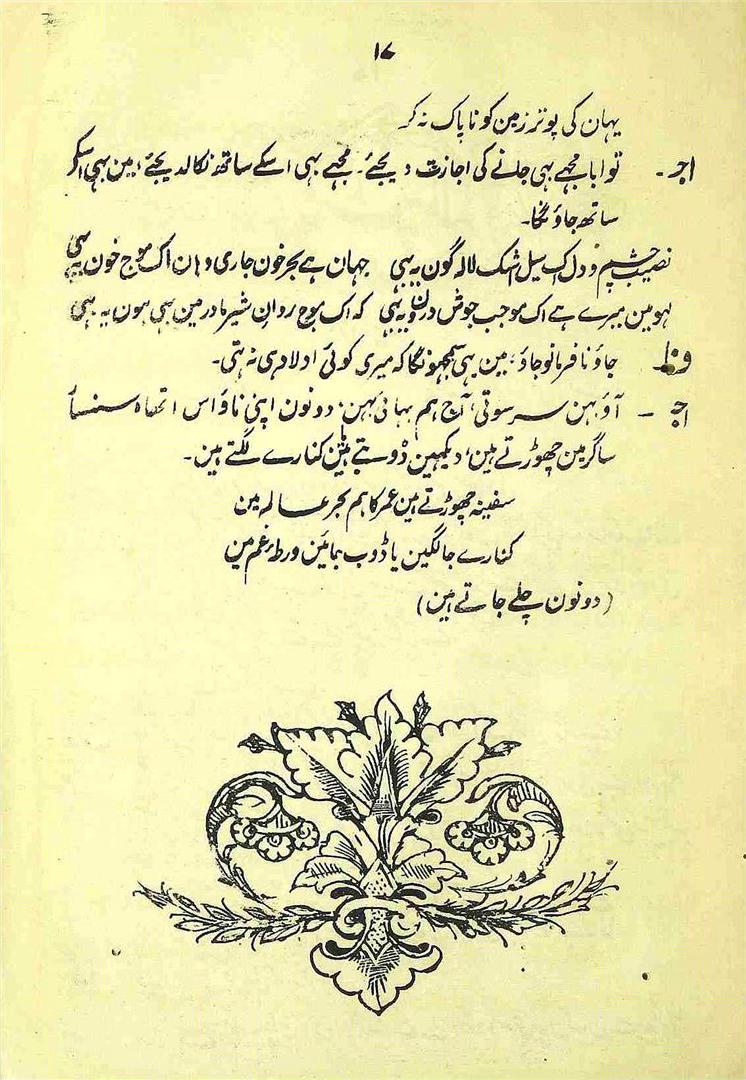 ۱۷
یہان کی پوتر زمین کو ناپاک نہ کر
اجے۔ تو ابا مجھے بہی جانے کی اجازت دیجئے۔ مجھے بہی اسکے ساتھ نکالدیجئے، مین بہی اسکے
ساتھ جاؤنگا۔
نصیب چشم و دل اک سیل اشک لالہ گون یہ بہی جہان ہے بحر خون جاری وہان اک موج خون یہ بہی
لہو مین میرے ہے اک موجب جوش درون یہ بہی کہ اک موج روان شیر مادر مین بہی ہون یہ بہی
جاؤ نافرمانو جاؤ، مین بہی سمجھونگا کہ میری کوئی اولاد ہی نہ تہی۔
اجے۔ آؤ بہن سرسوتی، آج ہم بہائی بہن دونون اپنی ناؤ اس اتھاہ سنسار
ساگر مین چھوڑتے ہین، دیکہین ڈوبتے ہین کنارے لگتے ہین۔
سفینہ چھوڑتے ہین عمر کا ہم بحر عالم مین
کنارے جا لگین یا ڈوب جائین ورطۂ غم مین
(دونون چلے جاتے ہین)